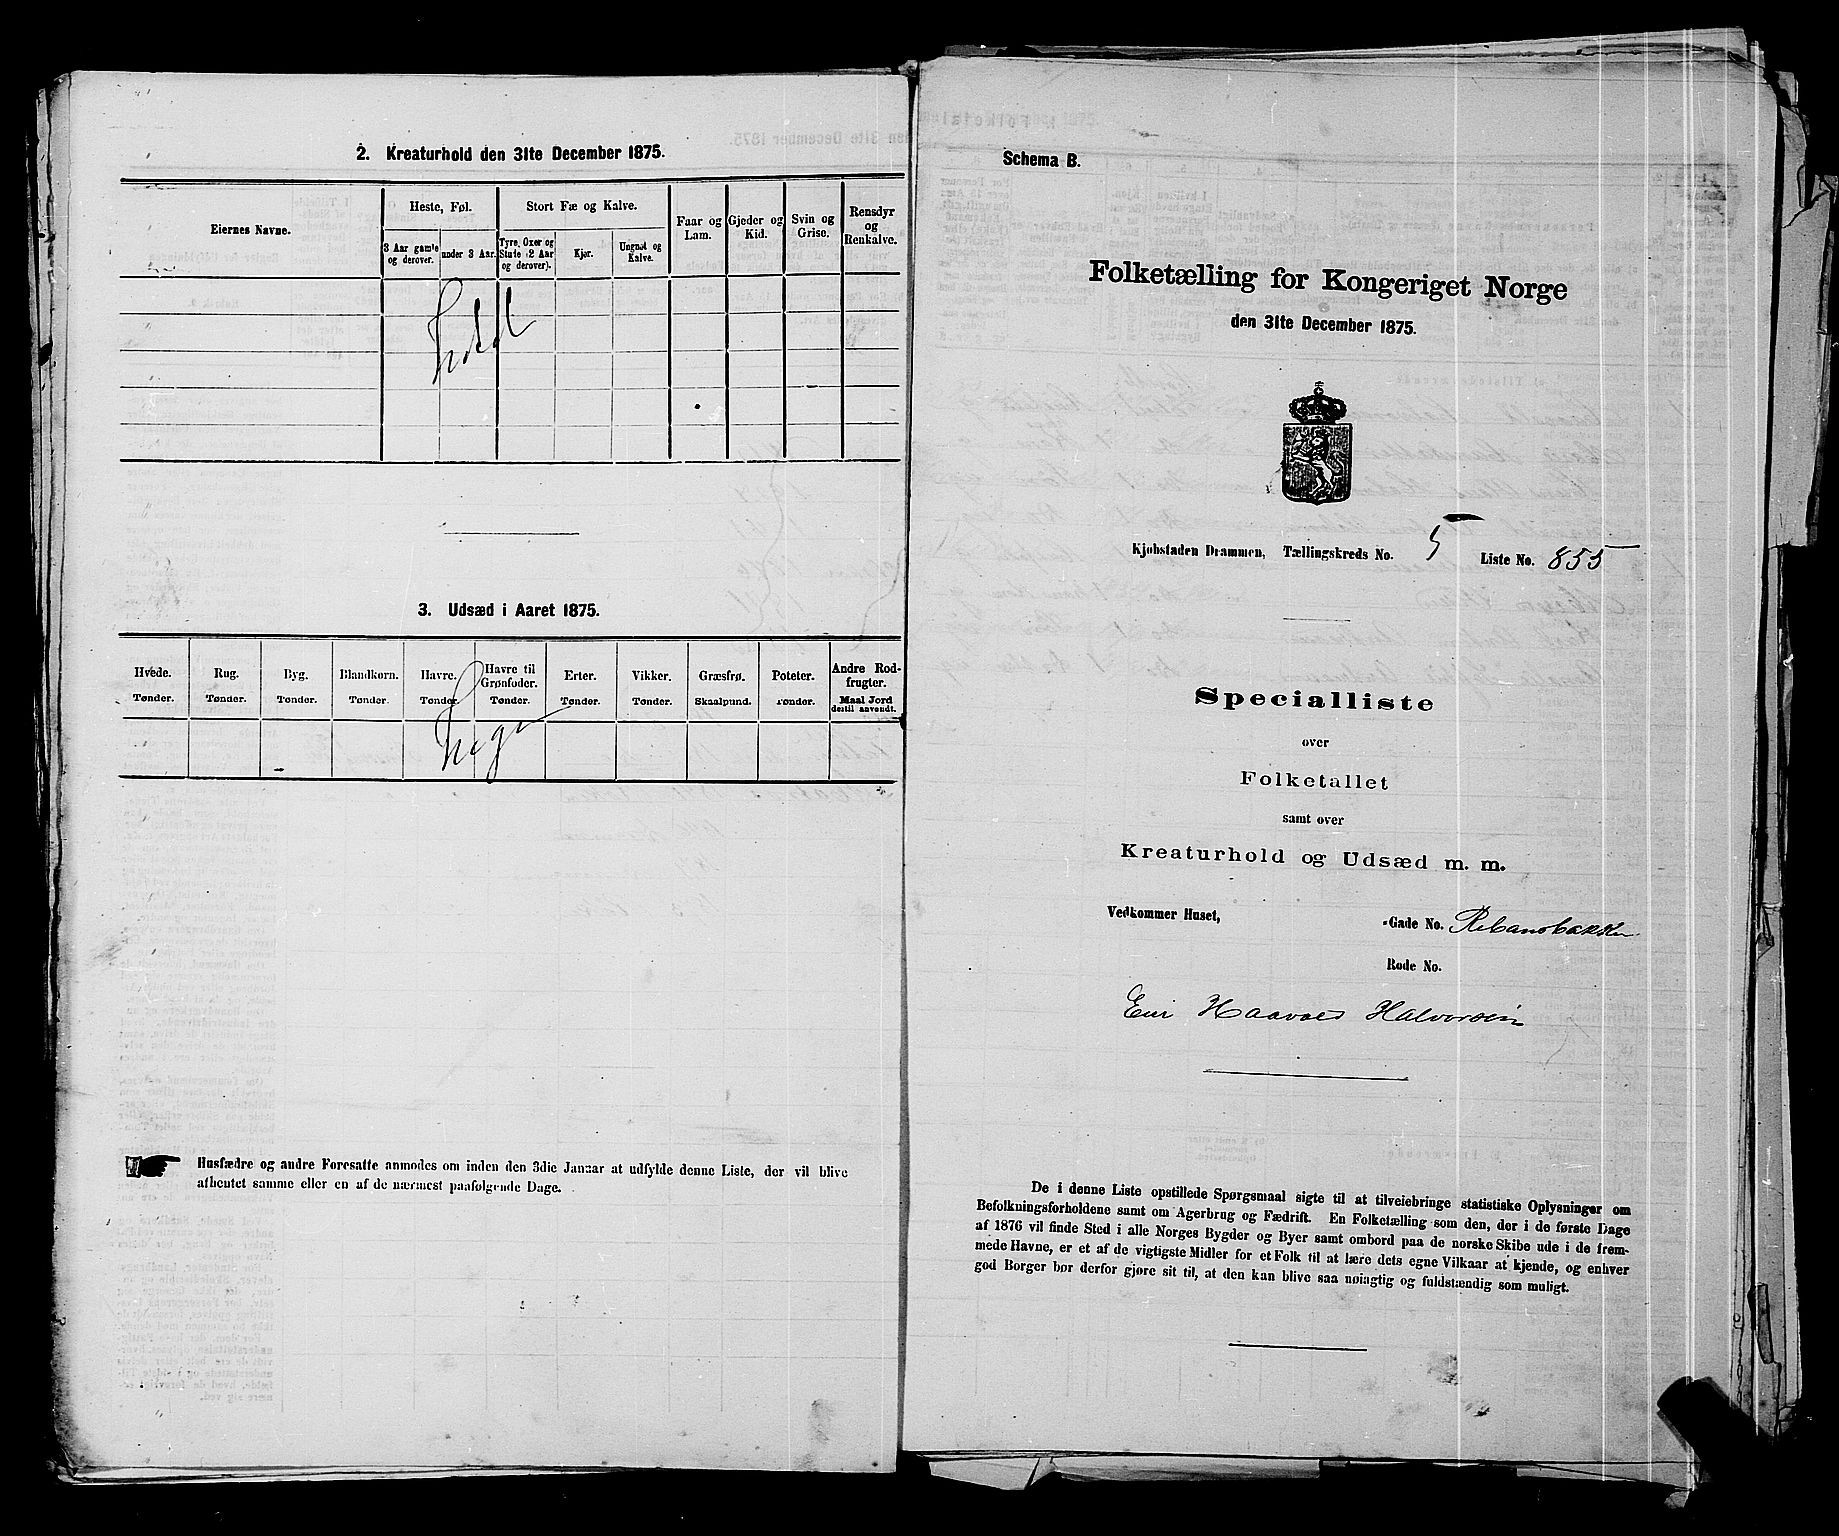 2. Kreaturhold den 31te December 1875.
Eiernes Navne.
Heste, Føl.
Stort Fæ og Kalve.
Faar og Lam.
Gjeder og Kid.
Svin og Grise.
Rensdyr og Renkalve.
3 Aar gamle og derover.
under 3 Aar.
Tyre, Oxer og Stute (2 Aar og derover).
Kjør.
Ungnøt og Kalve.
3. Udsæd i Aaret 1875.
Hvede. Rug. Byg. Blandkorn. Havre. Havre til Grønfoder. Erter. Vikker. Græsfrø. Poteter. Andre Rodfrugter.
Tønder. Tønder. Tønder. Tønder. Tønder. Tønder. Tønder. Tønder. Skaalpund. Tønder. Maal Jord dertil anvendt.
Husfædre og andre Foresatte anmodes om inden den 3die Januar at udfylde denne Liste, der vil blive
afhentet samme eller en af de nærmest paafølgende Dage.
Schema B.
Folketælling for Kongeriget Norge
den 31te December 1875.
Kjøbstaden Drammen, Tællingskreds No. 5 Liste No. 855
Specialliste
over
Folketallet
samt over
Kreaturhold og Udsæd m. m.
Vedkommer Huset, -Gade No.
Rode No.
Eier Haavald Halvorsen
De i denne Liste opstillede Spørgsmaal sigte til at tilveiebringe statistiske Oplysninger om
Befolkningsforholdene samt om Agerbrug og Fædrift. En Folketælling som den, der i de første Dage
af 1876 vil finde Sted i alle Norges Bygder og Byer samt ombord paa de norske Skibe ude i de frem-
mede Havne, er et af de vigtigste Midler for et Folk til at lære dets egne Vilkaar at kjende, og enhver
god Borger bør derfor gjøre sit til, at den kan blive saa nøiagtig og fuldstændig som muligt.